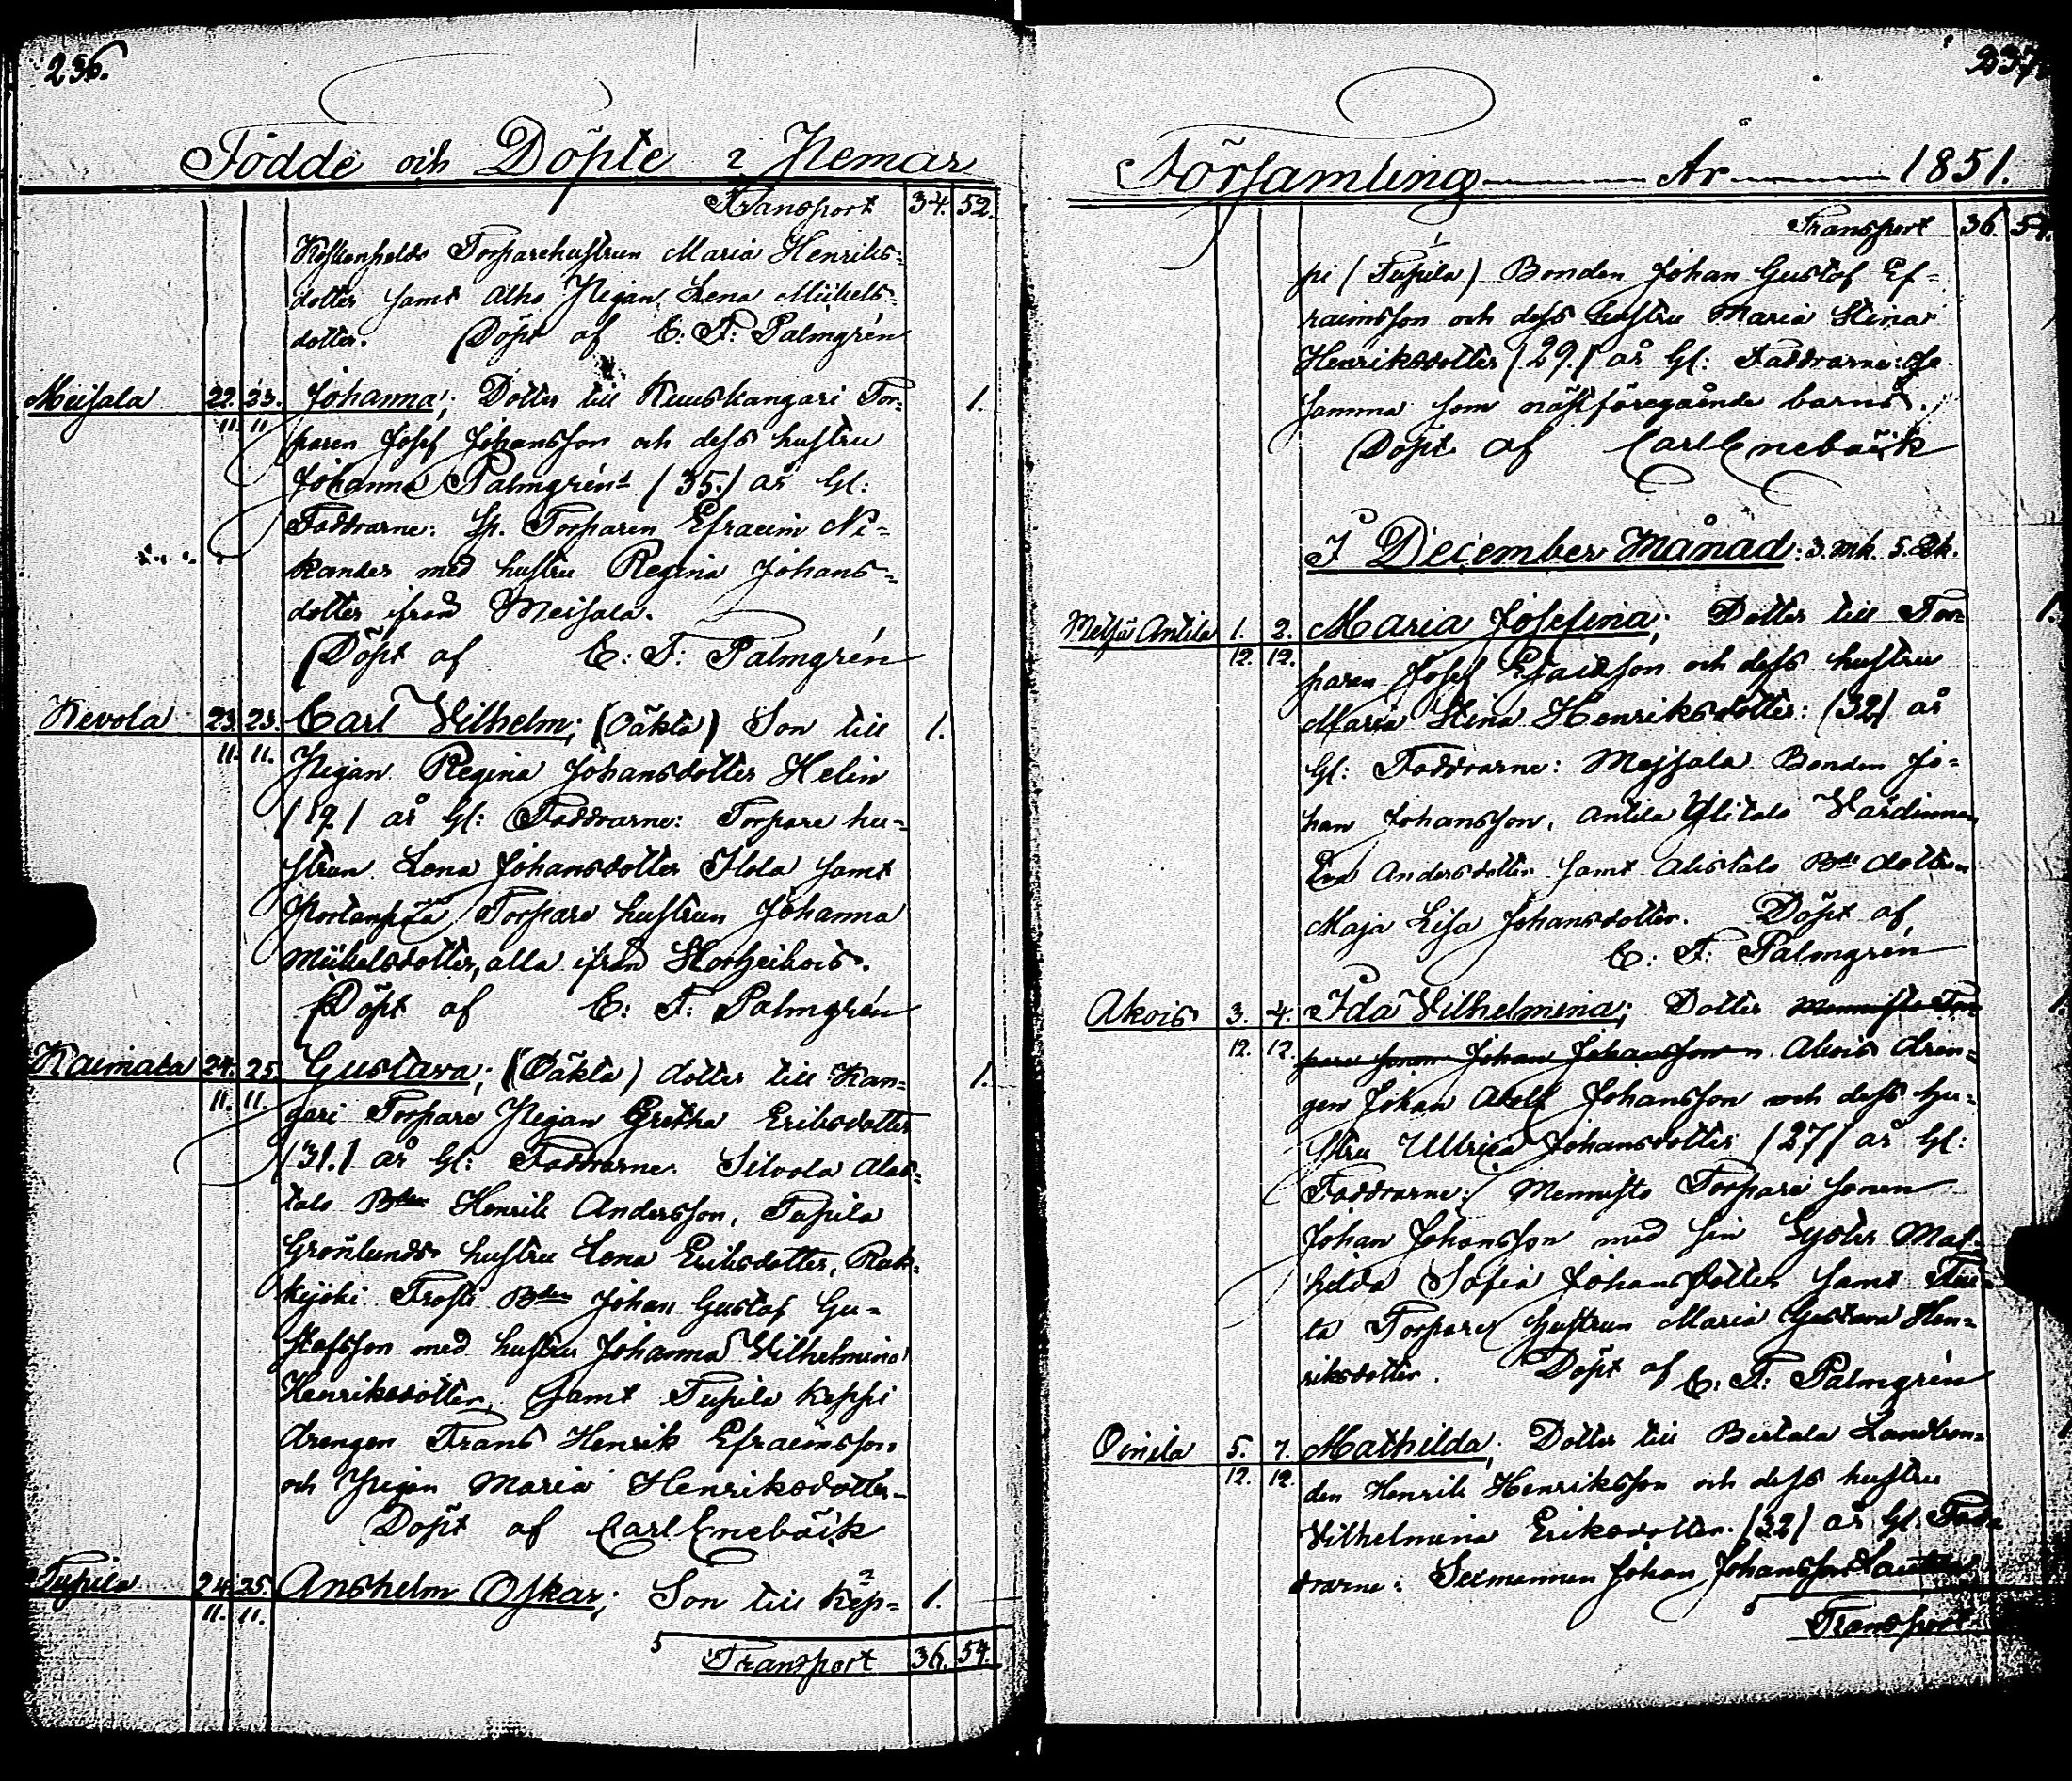 236.
Födde och Döpte i Nemar
Transport 34. 52.
Torparehustrun Maria Henriks=
dotter samt Alho Pigan Lena Mickels=
dotter. Döpt af C: F: Palmgrén
Meisala 22. 23. Johanna; Dotter till Kuuskangari Tor= 1.
11. 11. paren Josef Johansson och dess hustru
Johanna Palmgrént (35.) år Gl:
Faddrarne: Sp. Torparen Efraim Ni=
kander med hustru Regina Johans=
dotter ifrån Meisala.
Döpt af C: F: Palmgrén
Kevola 23. 23. Carl Vilhelm; (Oäkta) Son till 1.
11. 11. Pigan Regina Johansdotter Helin
(19) år Gl: Faddrarne: Torpare hu=
strun Lena Johansdotter Ilola samt
Torpare hustrun Johanna
Mickelsdotter, alla ifrån
Döpt af C: F: Palmgrén
Kaimala 24. 25. Gustava; (Oäkta) dotter till Kan= 1.
11. 11. gari Torpare Pigan Gretha Eriksdotter
(31.) år Gl: Faddrarne. Silvola Alas=
talo Bden Henrik Andersson, Tupila
Grönlunds hustru Lena Eriksdotter, Rak=
kijoki Trosti Bden Johan Gustaf Gu=
stafsson med hustru Johanna Vilhelmina
Henriksdotter, samt Tupila Keppi
drengen Frans Henrik Efraimsson
och Pigan Maria Henriksdotter.
Döpt af Carl Enebäck
Tupila 24. 25. Anshelm Oskar; Son till Kep= 1.
11. 11.
5 Transport 36. 54.
237.
Församling År 1851.
Transport 36. 54.
pi (Tupila) Bonden Johan Gustaf Ef=
raimsson och dess hustru Maria Stina
Henriksdotter (29.) år Gl: Faddrarne: de
samma som nästföregående barns.
Döpt af Carl Enebäck
I December Månad: 3. mk. 5. Qk.
Metsä Antila 1. 2. Maria Josefina; Dotter till Tor= 1.
12. 12. paren Josef Esaiasson och dess hustru
Maria Stina Henriksdotter: (32) år
Gl: Faddrarne: Mejsala Bonden Jo=
han Johansson, Antila Ylitalo Värdinnan
Eva Andersdotter samt Alistalo Bde dottern
Maja Lisa Johansdotter. Döpt af
C: F: Palmgrén
Akois 3. 4. Ida Vilhelmina; Dotter Mennisto Tor= 1.
12. 12. pare sonen Johan Johansson Akois dren=
gen Johan Adolf Johansson och dess hu=
stru Ullrica Johansdotter (27) år Gl:
Faddrarne: Mennisto Torpare sonen
Johan Johansson med sin Syster Mat=
hilda Sofia Johansdotter samt
Torpare hustrun Maria Gustava Hen=
riksdotter. Döpt af C: F: Palmgrén
Oinila 5. 7. Mathilda; Dotter till Bertala Landbon=
12. 12. den Henrik Henriksson och dess hustru
Vilhelmina Eriksdotter. (32) år Gl: Fad=
drarne: Johan Johansson
5 Transport